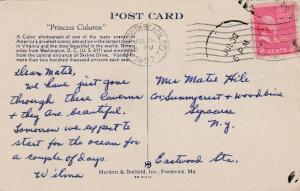 POST CARD
"Princess Column"
A Color photograph of one of the many scenes in
America's greatest cavern attraction—the largest cavern
in Virginia and the most beautiful in the world. Ninety
miles from Washington, D. C. (U. S. 211 and 340)
at the central entrance of Skyline Drive. Visited by
more than two hundred thousand persons each year.
Dear Matie,
We have just gone
through these Caverns
& they are beautiful.
Tomorrow we expect to
start for the ocean for
a couple of days.
Wilma
Mrs Matie Hile
Cor. Sunnycrest & Woodbine
Syracuse
N.Y.
Eastwood Sta.
Marken & Bielfeld, Inc., Frederick, Md.